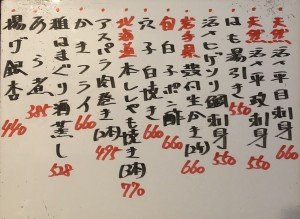 天然 活〆平目刺身 660
天然 活〆平政刺身 550
はも湯引き 550
活〆ヒゲソリ鯛刺身 550
岩手産 殻付生かき(2ケ) 660
白子ポン酢 660
穴子白焼き 660
北海道 本ししゃも焼き(3本) 770
アスパラ肉巻き(2本) 495
かきフライ 660
蛤酒蒸し 528
あら煮 385
揚げ銀杏 440